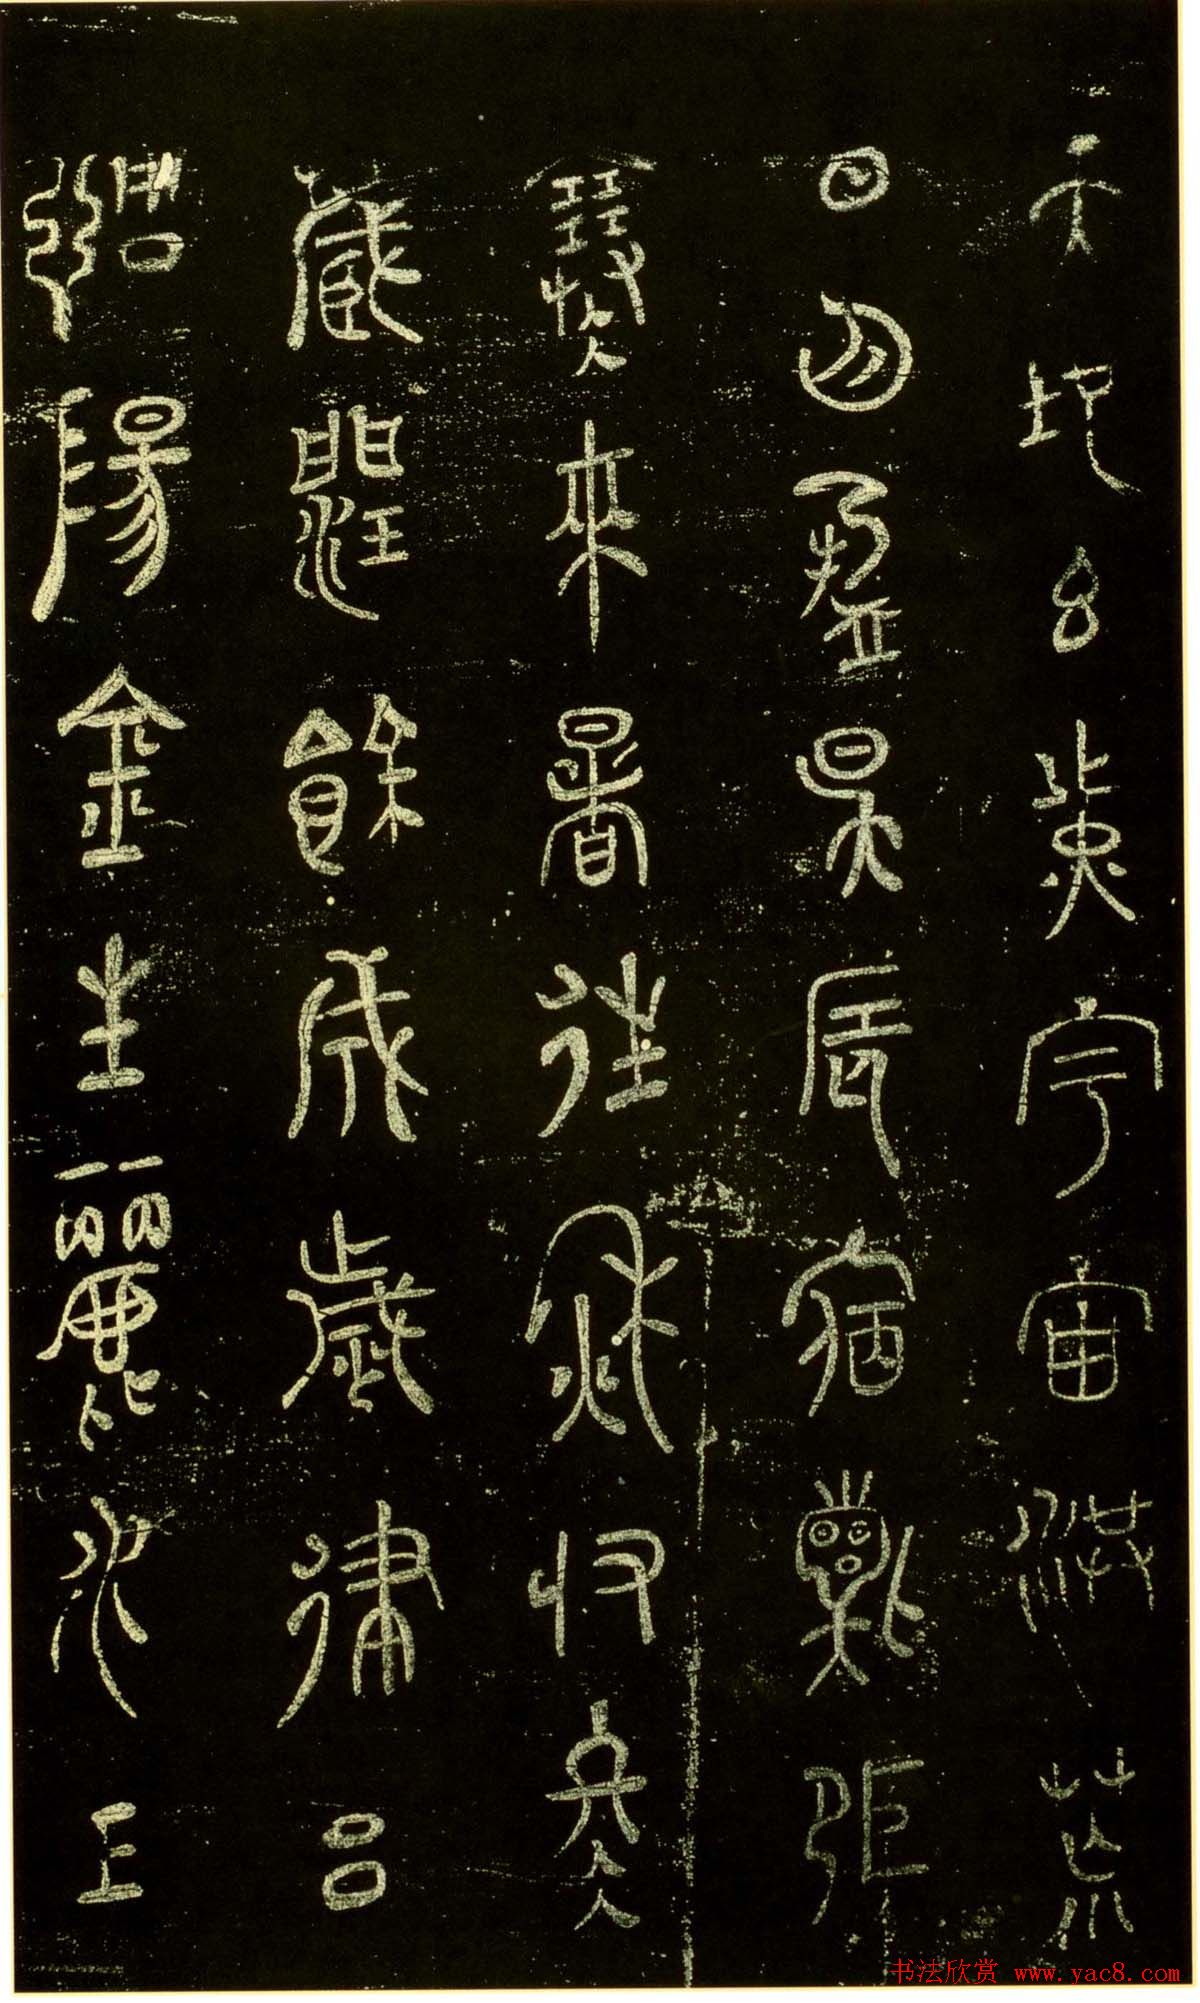 天地玄黃宇宙洪荒
日月盈昃辰宿列張
寒來暑往秋收冬
藏閏餘成歲律呂
調陽金生麗水玉
书法欣赏 www.yac8.com